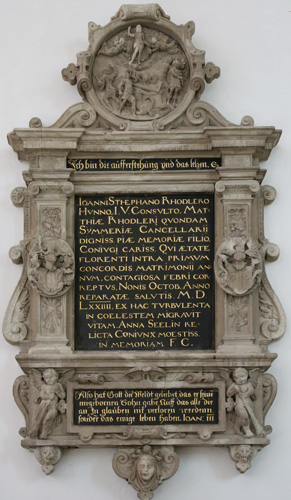 Ich bin die aufferstehung vnd das leben.
IOANNI STHEPHANO RHODLERO
HVNNO, I. V CONSVLTO, MAT
THIÆ RHODLERI QVONDAM
SVMMERIÆ CANCELLARII
DIGNISS PIÆ MEMORIÆ FILIO,
CONIVGI CARISS QVI ÆTATE
FLORENTI INTRA PRIMVM
CONCORDIS MATRIMONII AN
NVM, CONTAGIOSA FEBRI COR
REPTVS, NONIS OCTOB. ANNO
REPARATÆ SALVTIS M D
LXXIIII, EX HAC TVRBVLENTA
IN COELESTEM MIGRAVIT
VITAM. ANNA SEELIN RE
LICTA CONIVNX MOESTISS.
IN MEMORIAM. F. C.
Also hat Gott die Weldt geliebet das er sein
eingebornen Sohn gabe Auff das alle die
an In glauben nit verloren
sonder das ewige leben haben. IOAN: III